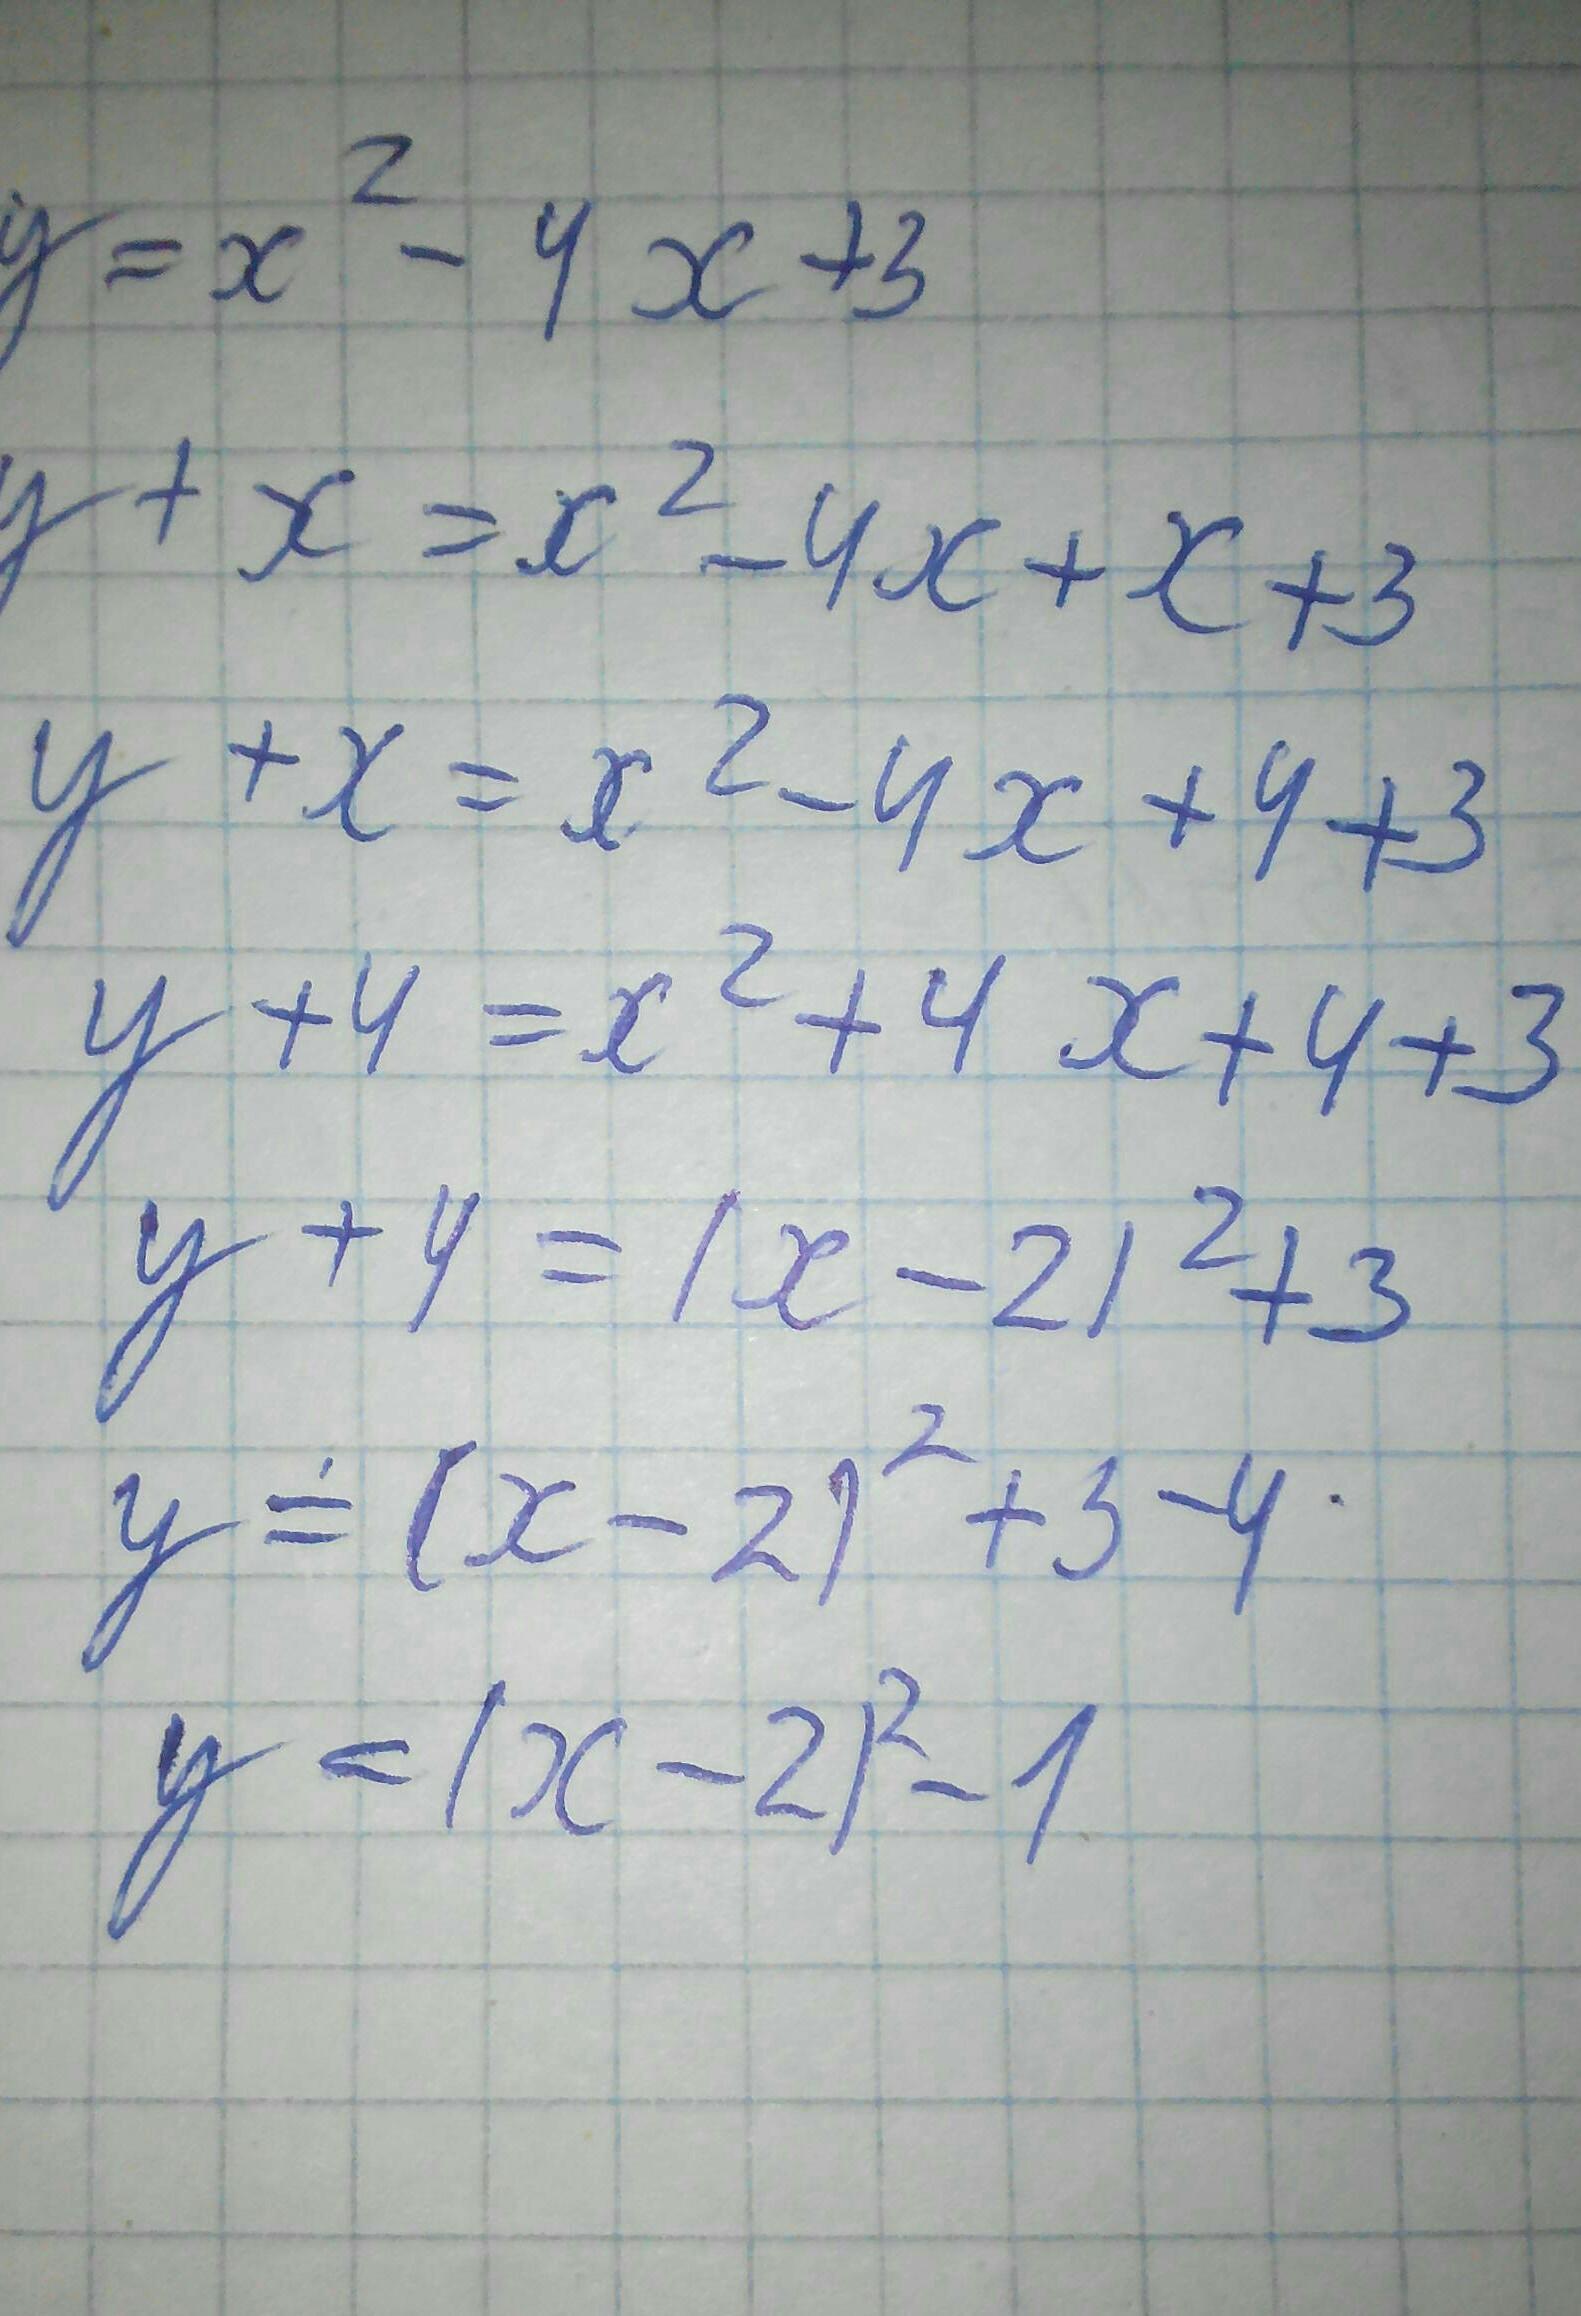 y = x² - 4x + 3
y + x = x² - 4x + x + 3
y + x = x² - 4x + 4 + 3
y + 4 = x² + 4x + 4 + 3
y + 4 = (x - 2)² + 3
y = (x - 2)² + 3 - 4
y = (x - 2)² - 1